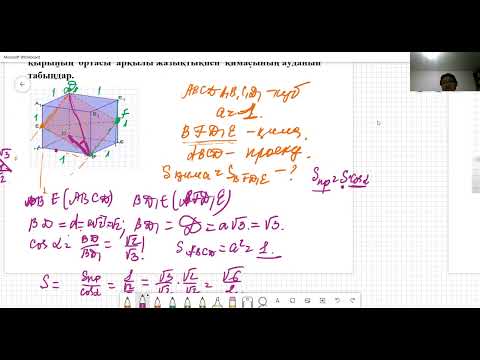 Microsoft Whiteboard
қырының ортасы арқылы жазықтықпен қимасының ауданын
табыңдар.
ABCDA₁B₁C₁D₁ - куб
a = 1.
BFD₁E - қима.
ABCD - проекц.
S қима = S BFD₁E - ?
Sпр = S·cosα
BD ∈ (ABCD) BD₁ ∈ (BFD₁E)
BD = d = a√2 = √2; BD₁ = D = a√3 = √3.
cosα = BD/BD₁ = √2/√3; S ABCD = a² = 1.
S = Sпр/cosα = = √3/√2 · √2/√2 = √6/2